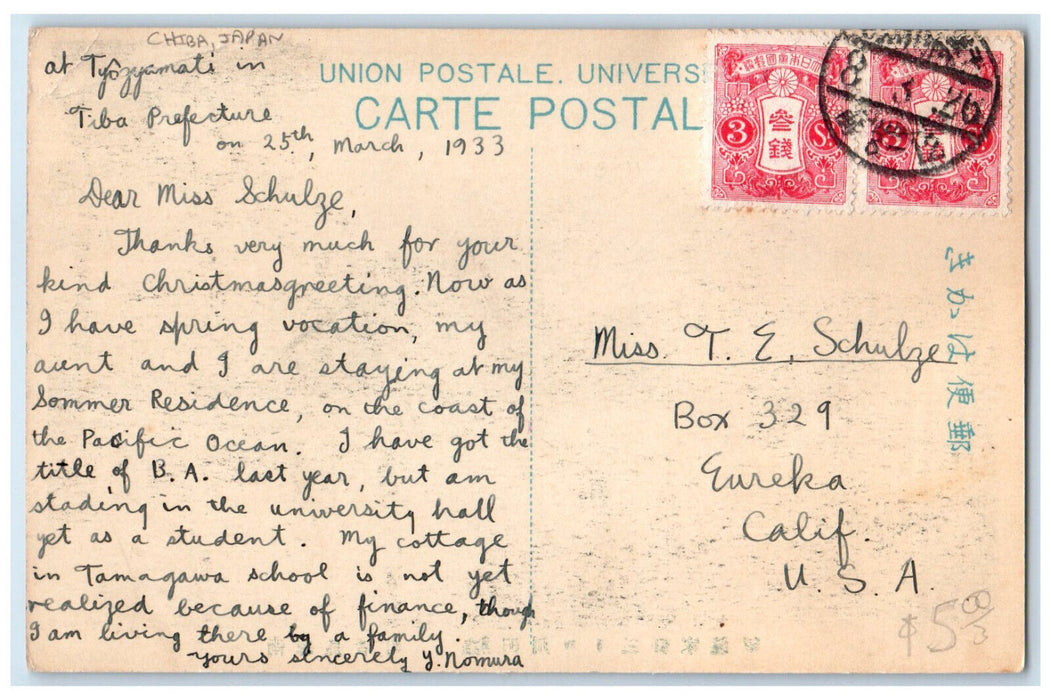 CHIBA, JAPAN
at Tyôzyamati in
Tiba Prefecture
on 25th, March, 1933
Dear Miss Schulze,
Thanks very much for your
kind Christmasgreeting. Now as
I have spring vocation, my
aunt and I are staying at my
Sommer Residence, on the coast of
the Pacific Ocean. I have got the
title of B.A. last year, but am
stading in the university hall
yet as a student. My cottage
in Tamagawa school is not yet
realized because of finance, though
I am living there by a family.
yours sincerely Y. Nomura
UNION POSTALE. UNIVERS
CARTE POSTAL
3 参錢 Sn
3 Sn
きかは便郵
Miss. T. E. Schulze
Box 329
Eureka
Calif.
U. S. A.
$5 00/3